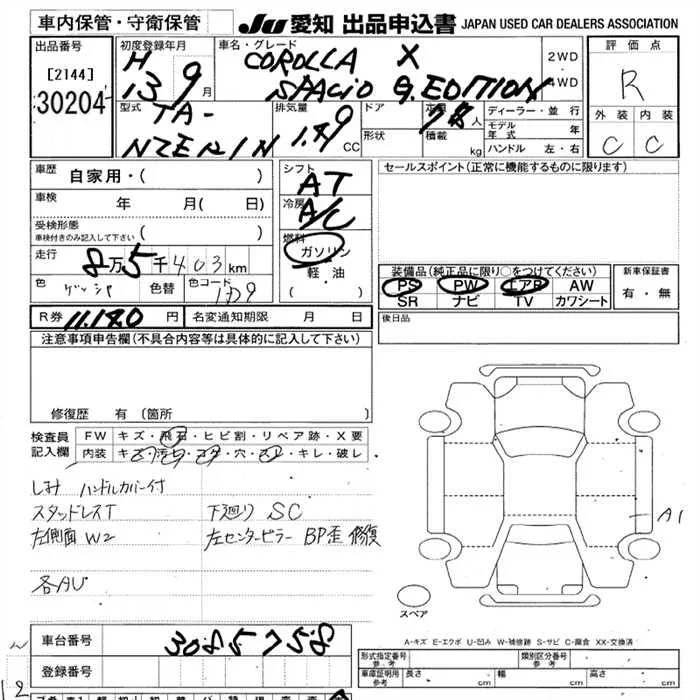 車内保管・守衛保管 JU 愛知 出品申込書 JAPAN USED CAR DEALERS ASSOCIATION
出品番号 [2144] 30204
初度登録年月 H 13 9月
車名・グレード COROLLA X
SPACIO G.EDITION
2WD
4WD
評価点 R
外装 内装
C C
型式 TA-
NZE121N
排気量 1.49 CC
ドア
形状
定員 人
積載 kg
ディーラー・並行
モデル年式 年
ハンドル 左・右
車歴 自家用・( )
車検 年 月( 日)
受検形態
車検付きのみ記入して下さい ( )
走行 8万5千403km
色 色替 色コード
R券 11.180円 名変通知期限 月 日
シフト AT
冷房 A/C
燃料 ガソリン
軽油
( )
セールスポイント(正常に機能するものに限ります)
装備品(純正品に限り○をつけてください)
PS PW エアB AW
SR ナビ TV カワシート
新車保証書
有・無
後日品
注意事項申告欄(不具合内容等は具体的に記入して下さい)
修復歴 有(箇所 )
検査員記入欄
FW キズ・飛石・ヒビ割・リペア跡・X要
内装 キズ・汚れ・コゲ・穴・スレ・キレ・破レ
しみ ハンドルカバー付
スタッドレスT 下廻り SC
左側面 W2 左センターピラー BP歪 修復
各AU
A1
スペア
A-キズ E-エクボ U-凹み W-補修跡 S-サビ C-腐食 XX-交換済
車台番号 3085758
登録番号
形式指定番号 参考
類別区分番号 参考
車庫証明用 参考 長さ cm 幅 cm 高さ cm